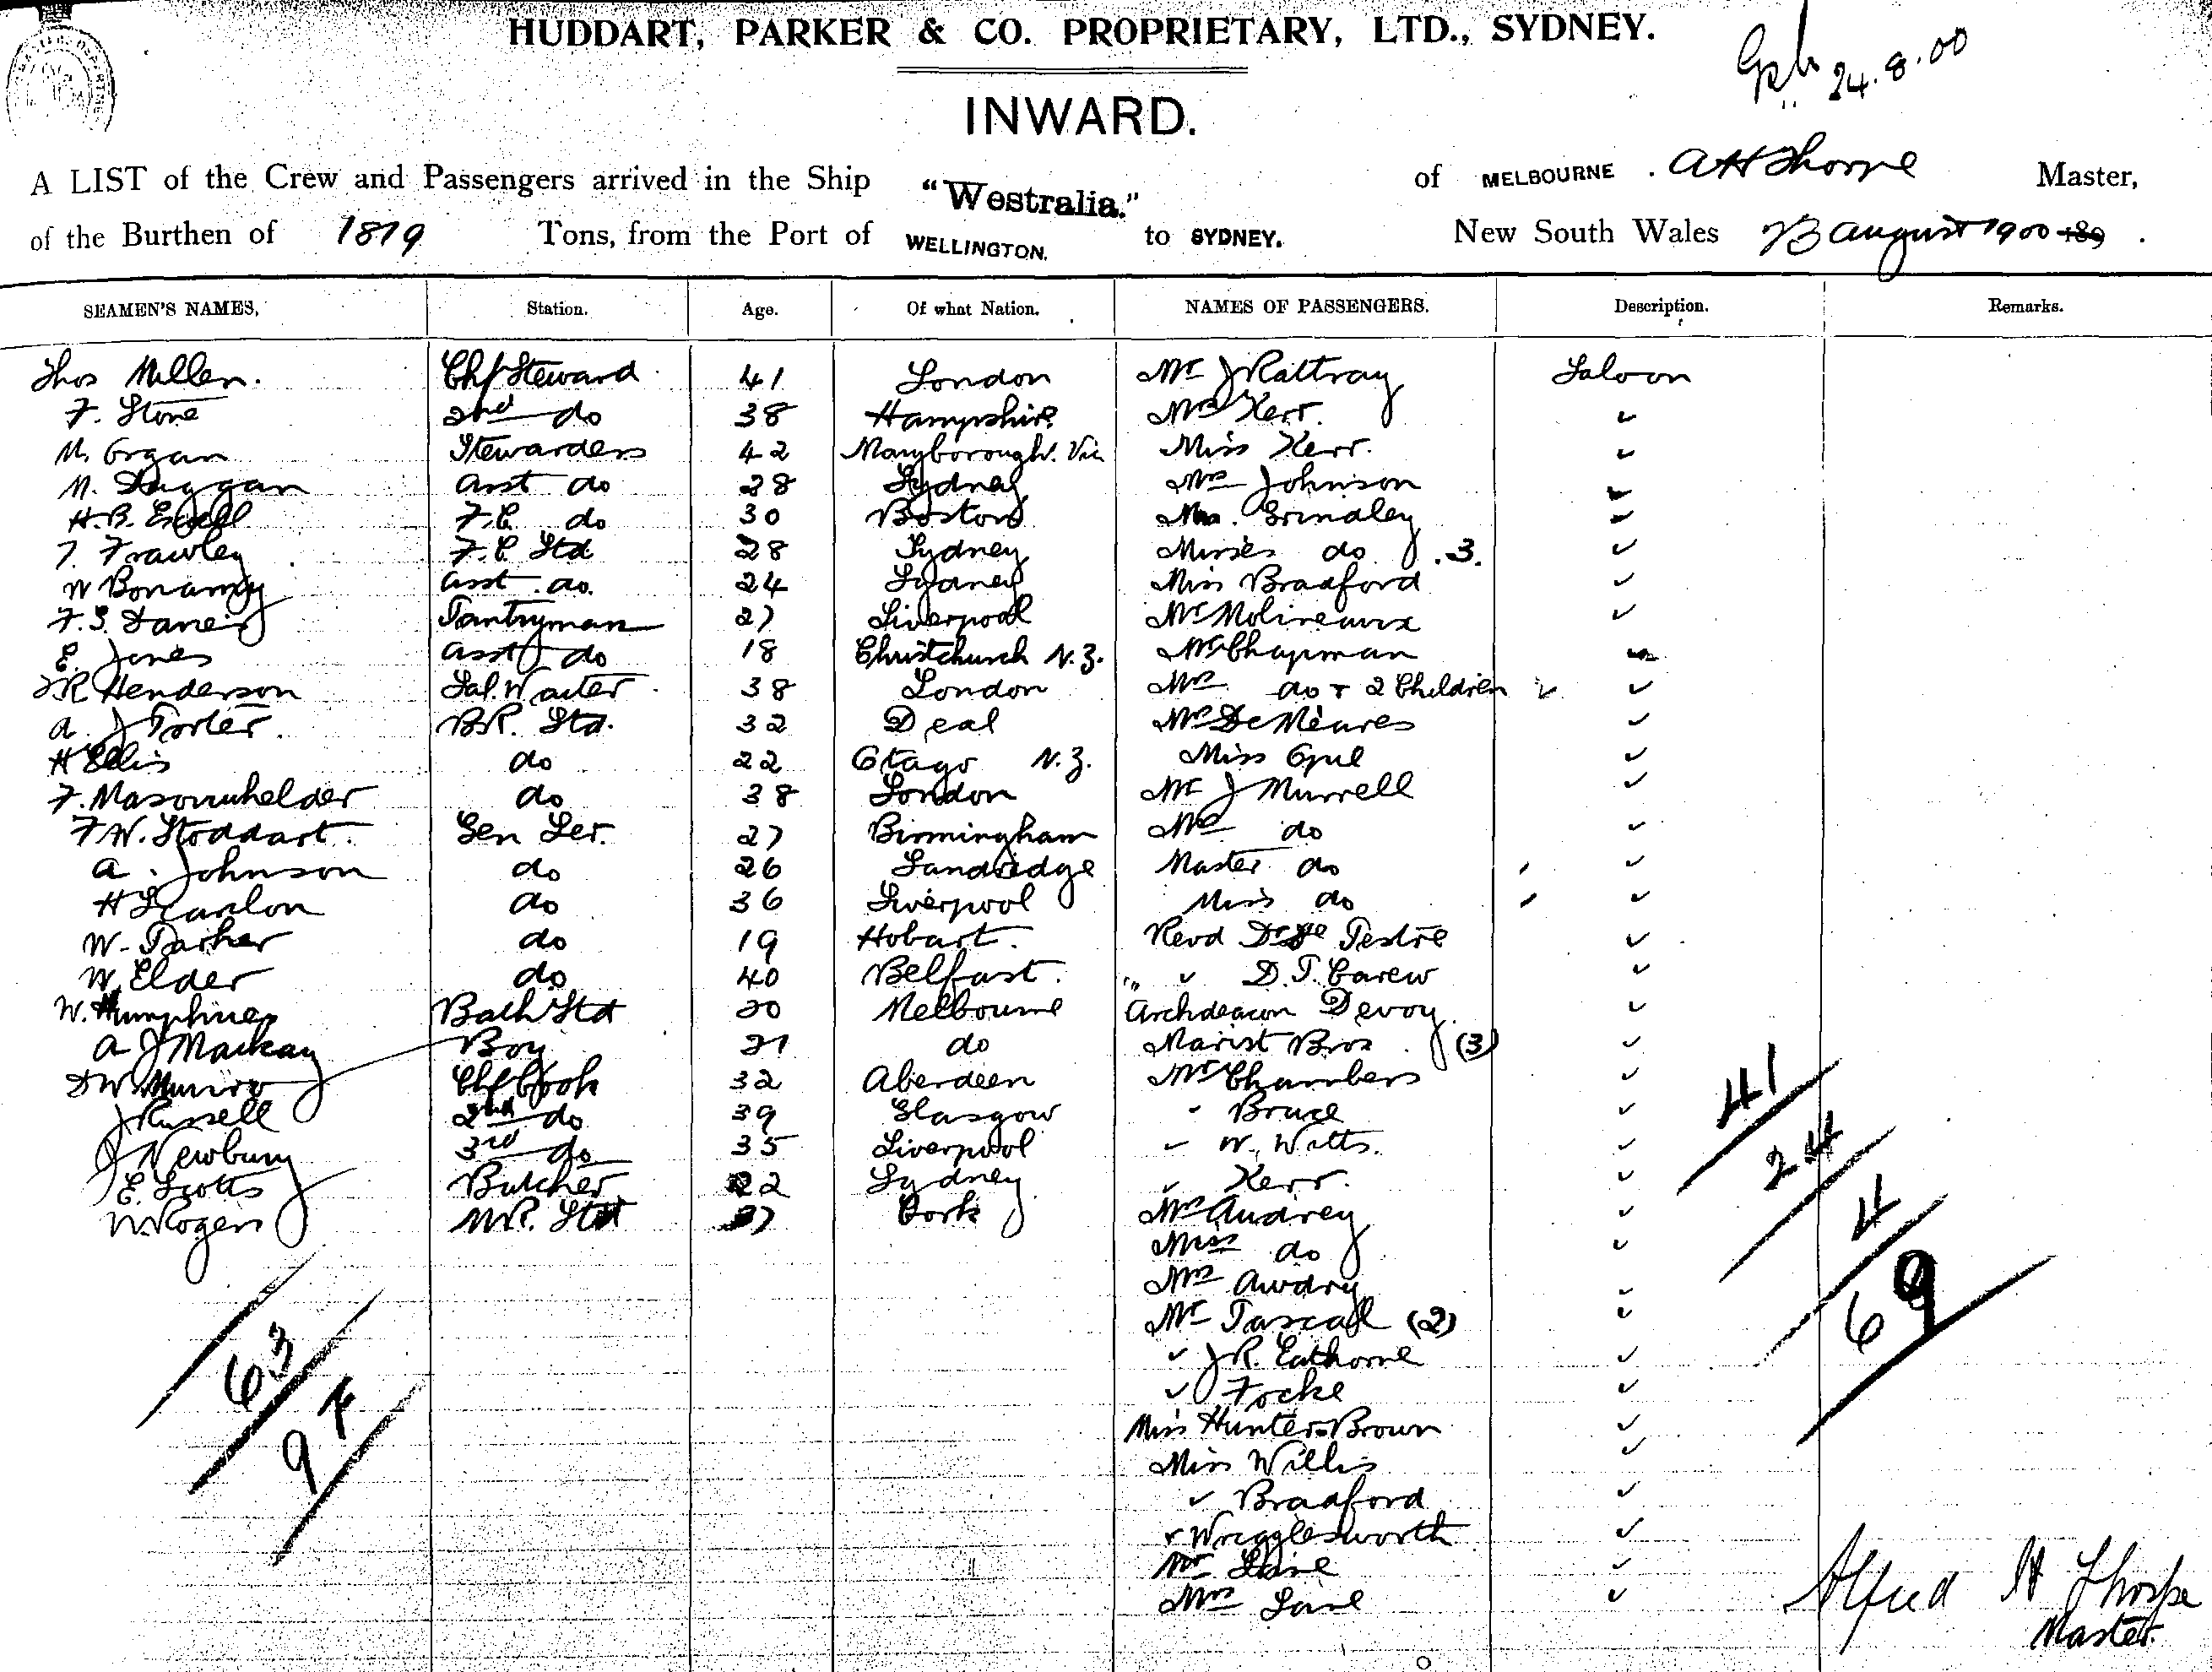 HUDDART, PARKER & CO. PROPRIETARY, LTD., SYDNEY.
24.8.00
INWARD.
A LIST of the Crew and Passengers arrived in the Ship "Westralia." of MELBOURNE. A H Thorpe Master,
of the Burthen of 1819 Tons, from the Port of WELLINGTON. to SYDNEY. New South Wales 23 August 1900 189 .
SEAMEN'S NAMES, Station. Age. Of what Nation. NAMES OF PASSENGERS. Description. Remarks.
Thos Millen. Chf Steward 41 London Mr J Rattray Saloon
F. Stone 2nd do 38 Hampshire Mrs Kerr. ✓
M. Organ Stewardess 42 Maryborough. Vic Miss Kerr. ✓
M. Duggan Asst do 28 Sydney Mrs Johnson ✓
H.B. F.C. do 30 Boston Mrs. Grindley ✓
T. Frawley F.C. Std 28 Sydney Misses do .3. ✓
W Bonamy Asst. do. 24 Sydney Miss Bradford ✓
F.S. Pantryman 27 Liverpool Mr Molineaux ✓
E. Jones Asst do 18 Christchurch N.Z. Mr Chapman
J R Henderson Sal. Waiter 38 London Mrs do + 2 Children ✓ ✓
A. J Porter. B.R. Std. 32 Deal Mr De Meures ✓
H Ellis do 22 Otago N.Z. Miss ✓
F. do 38 London Mr J Murrell ✓
F W. Stoddart. Gen Ser. 27 Birmingham Mrs do ✓
A. Johnson do 26 Sandridge Master do ✓
H Scanlon do 36 Liverpool Miss do ✓
W. Parker do 19 Hobart. Revd ✓
W. Elder do 40 Belfast. " ✓ D. J. Carew ✓
W. Humphries Bath Std 20 Melbourne Archdeacon Devoy. ✓
A J Mackay Boy 21 do Marist Bros. (3) ✓
D W Munro Chf Cook 32 Aberdeen Mr Chambers ✓
J Russell 2nd do 39 Glasgow " Bruce ✓
J Newbury 3rd do 35 Liverpool ✓ W. Watts. ✓
E. Scotts Butcher 22 Sydney ✓ Kerr. ✓
W. Rogers M.R. Std 37 Cork Mr Audrey ✓
Miss do ✓
Mrs Awdry
Mr Pascall (2) ✓
✓ J R. Eathorne ✓
✓ Focke ✓
Miss Hunter-Brown ✓
Miss Willis ✓
✓ Bradford ✓
✓ Wrigglesworth ✓
Mr Lane ✓
Mrs Lane ✓
41
24
4
69
63
94
Alfred H Thorpe
Master.